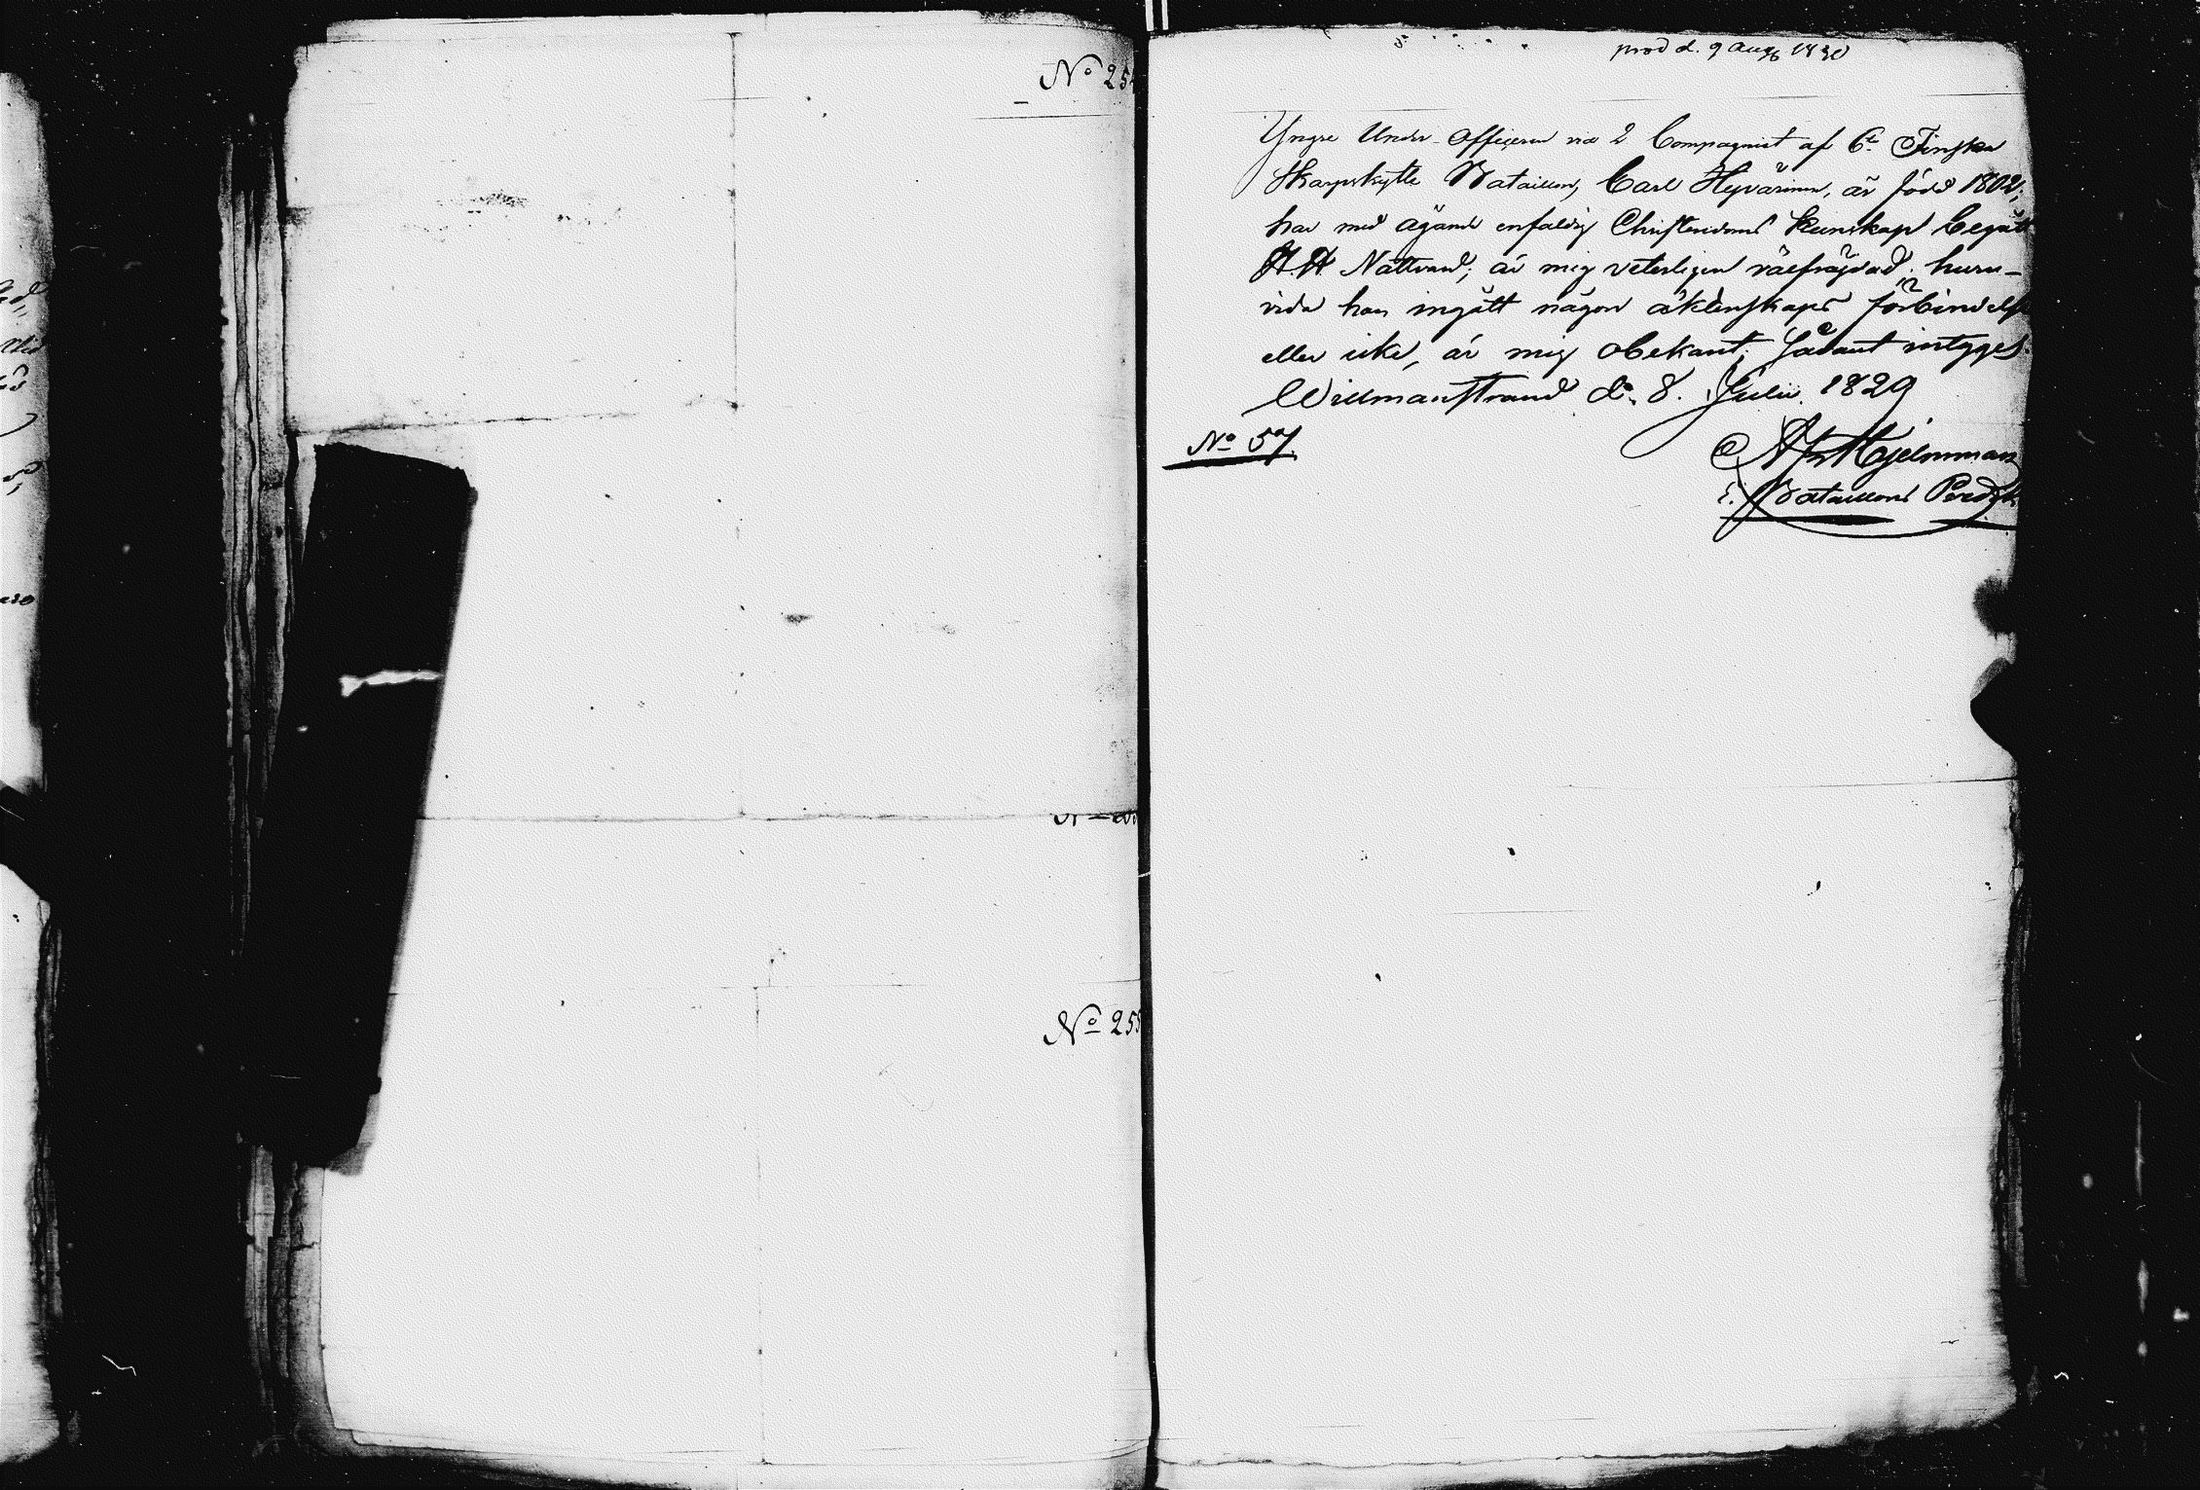 No 254
No 255
prod d. 9 Aug 1830
Yngre Under-Officeren vid 2 Compagniet af 6te Finska
Skarpskytte Bataillon, Carl Hyvärinen, är född 1802;
har med ägande enfaldig Christendoms kunskap begått
H. H. Nattvard; är mig veterligen välfräjdad; huru-
vida han ingått någon äktenskaps förbindelse
eller icke, är mig obekant; sådant intygas.
Willmanstrand d. 8. Julii 1829
No 57.
Hjelmman
Bataillons Predik